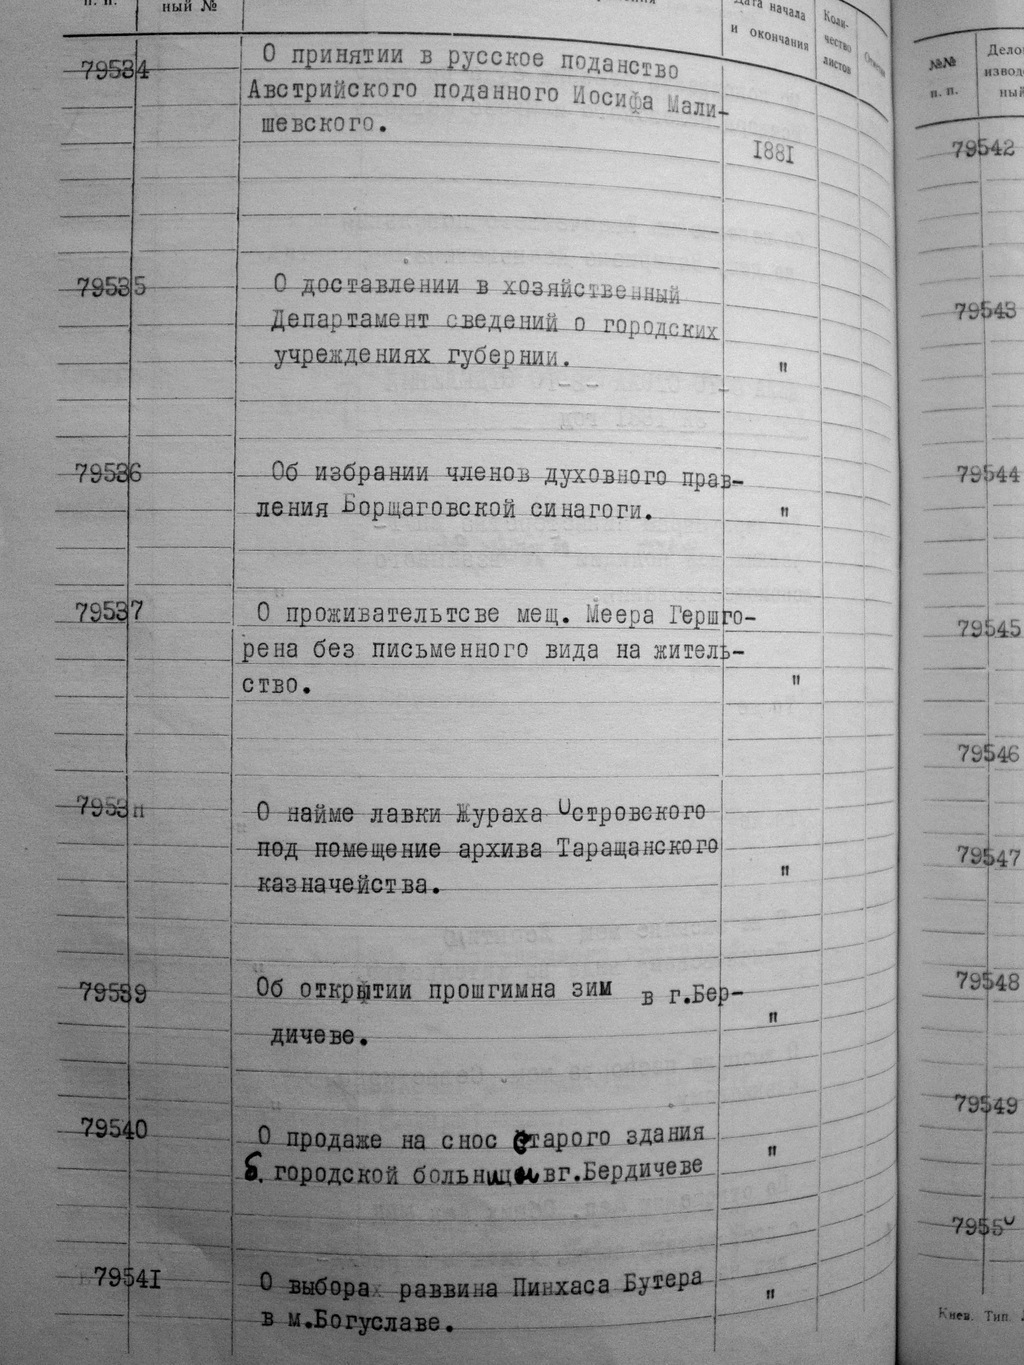 п. п.
ный №
Дата начала
и окончания
Коли-
чество
листов
79534
О принятии в русское поданство
Австрийского поданного Иосифа Мали-
шевского.
1881
79535
О доставлении в хозяйственный
Департамент сведений о городских
учреждениях губернии.
"
79536
Об избрании членов духовного прав-
ления Борщаговской синагоги.
"
79537
О проживательтсве мещ. Меера Гершго-
рена без письменного вида на житель-
ство.
"
7953п
О найме лавки Жураха Островского
под помещение архива Таращанского
казначейства.
"
79539
Об открытии прошгимна зим в г.Бер-
дичеве.
"
79540
О продаже на снос старого здания
б. городской больницы вг.Бердичеве
"
79541
О выборах раввина Пинхаса Бутера
в м.Богуславе.
"
№№
п. п.
Дело
извод
ный
79542
79543
79544
79545
79546
79547
79548
79549
79550
Киев. Тип.